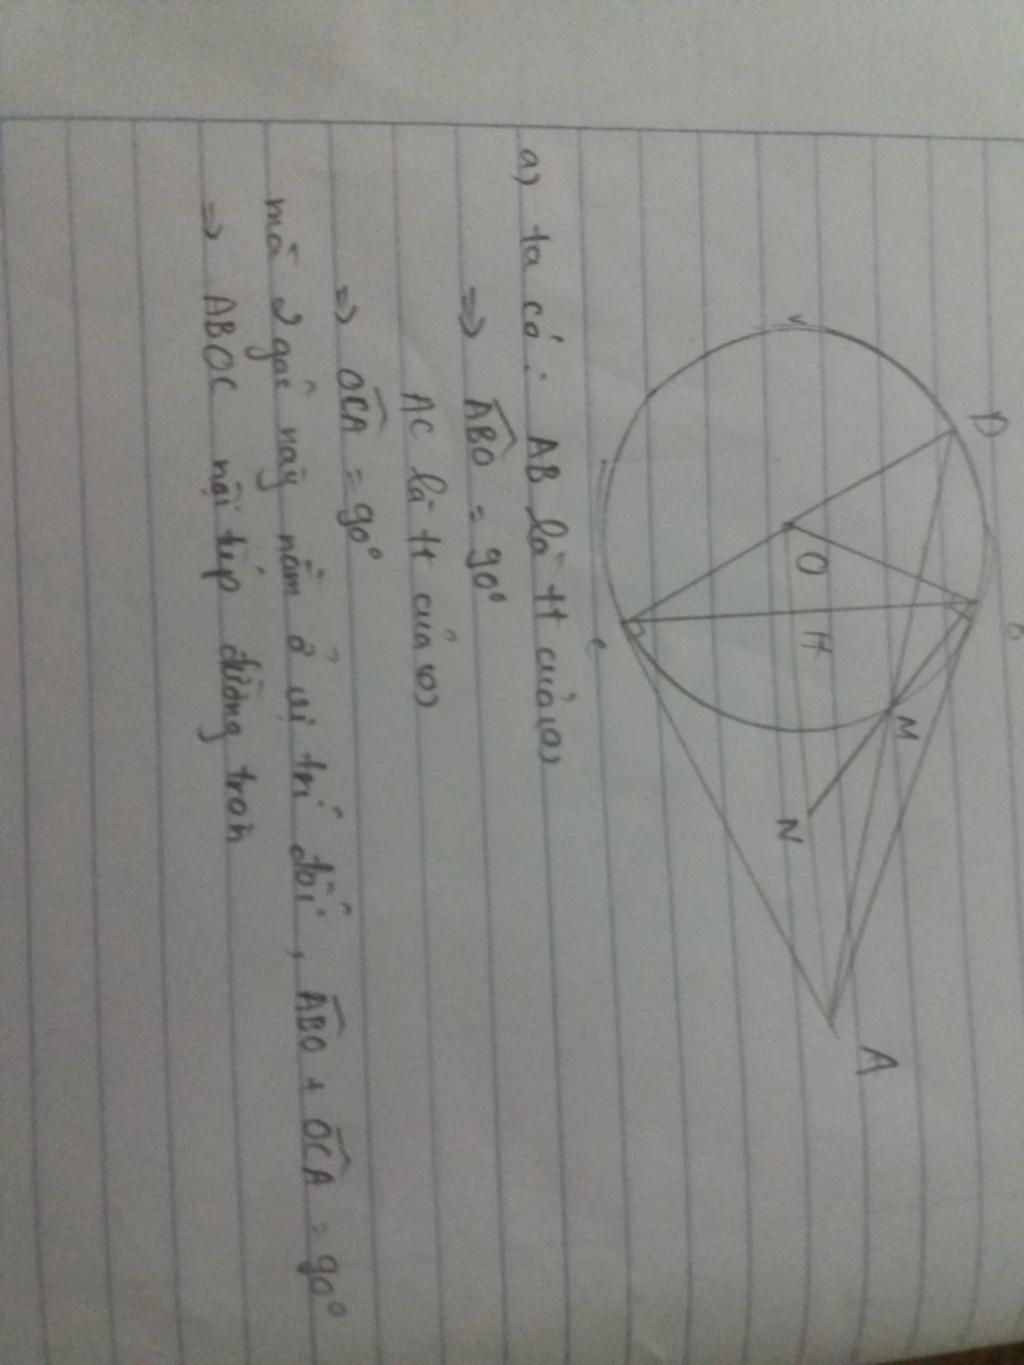 D
B
O
H
M
C
N
A
a) ta có: AB là tt của (O)
=> ABO = 90°
AC là tt của (O)
=> OCA = 90°
mà 2 góc này nằm ở vị trí đối, ABO + OCA = 90°
=> ABOC nội tiếp đường tròn